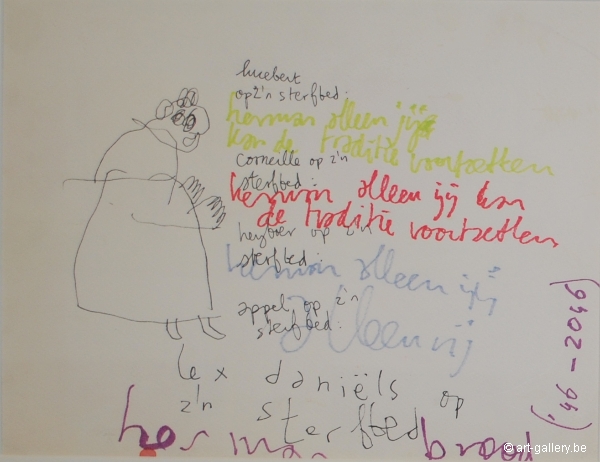 lucebert
op z'n sterfbed:
herman alleen jij
kan de traditie voortzetten
corneille op z'n
sterfbed:
herman alleen jij kan
de traditie voortzetten
heyboer op z'n
sterfbed:
herman alleen jij
appel op z'n
sterfbed:
alleen jij
lex daniëls op
z'n sterfbed
herman brood
('96 - 2046)
© art-gallery.be